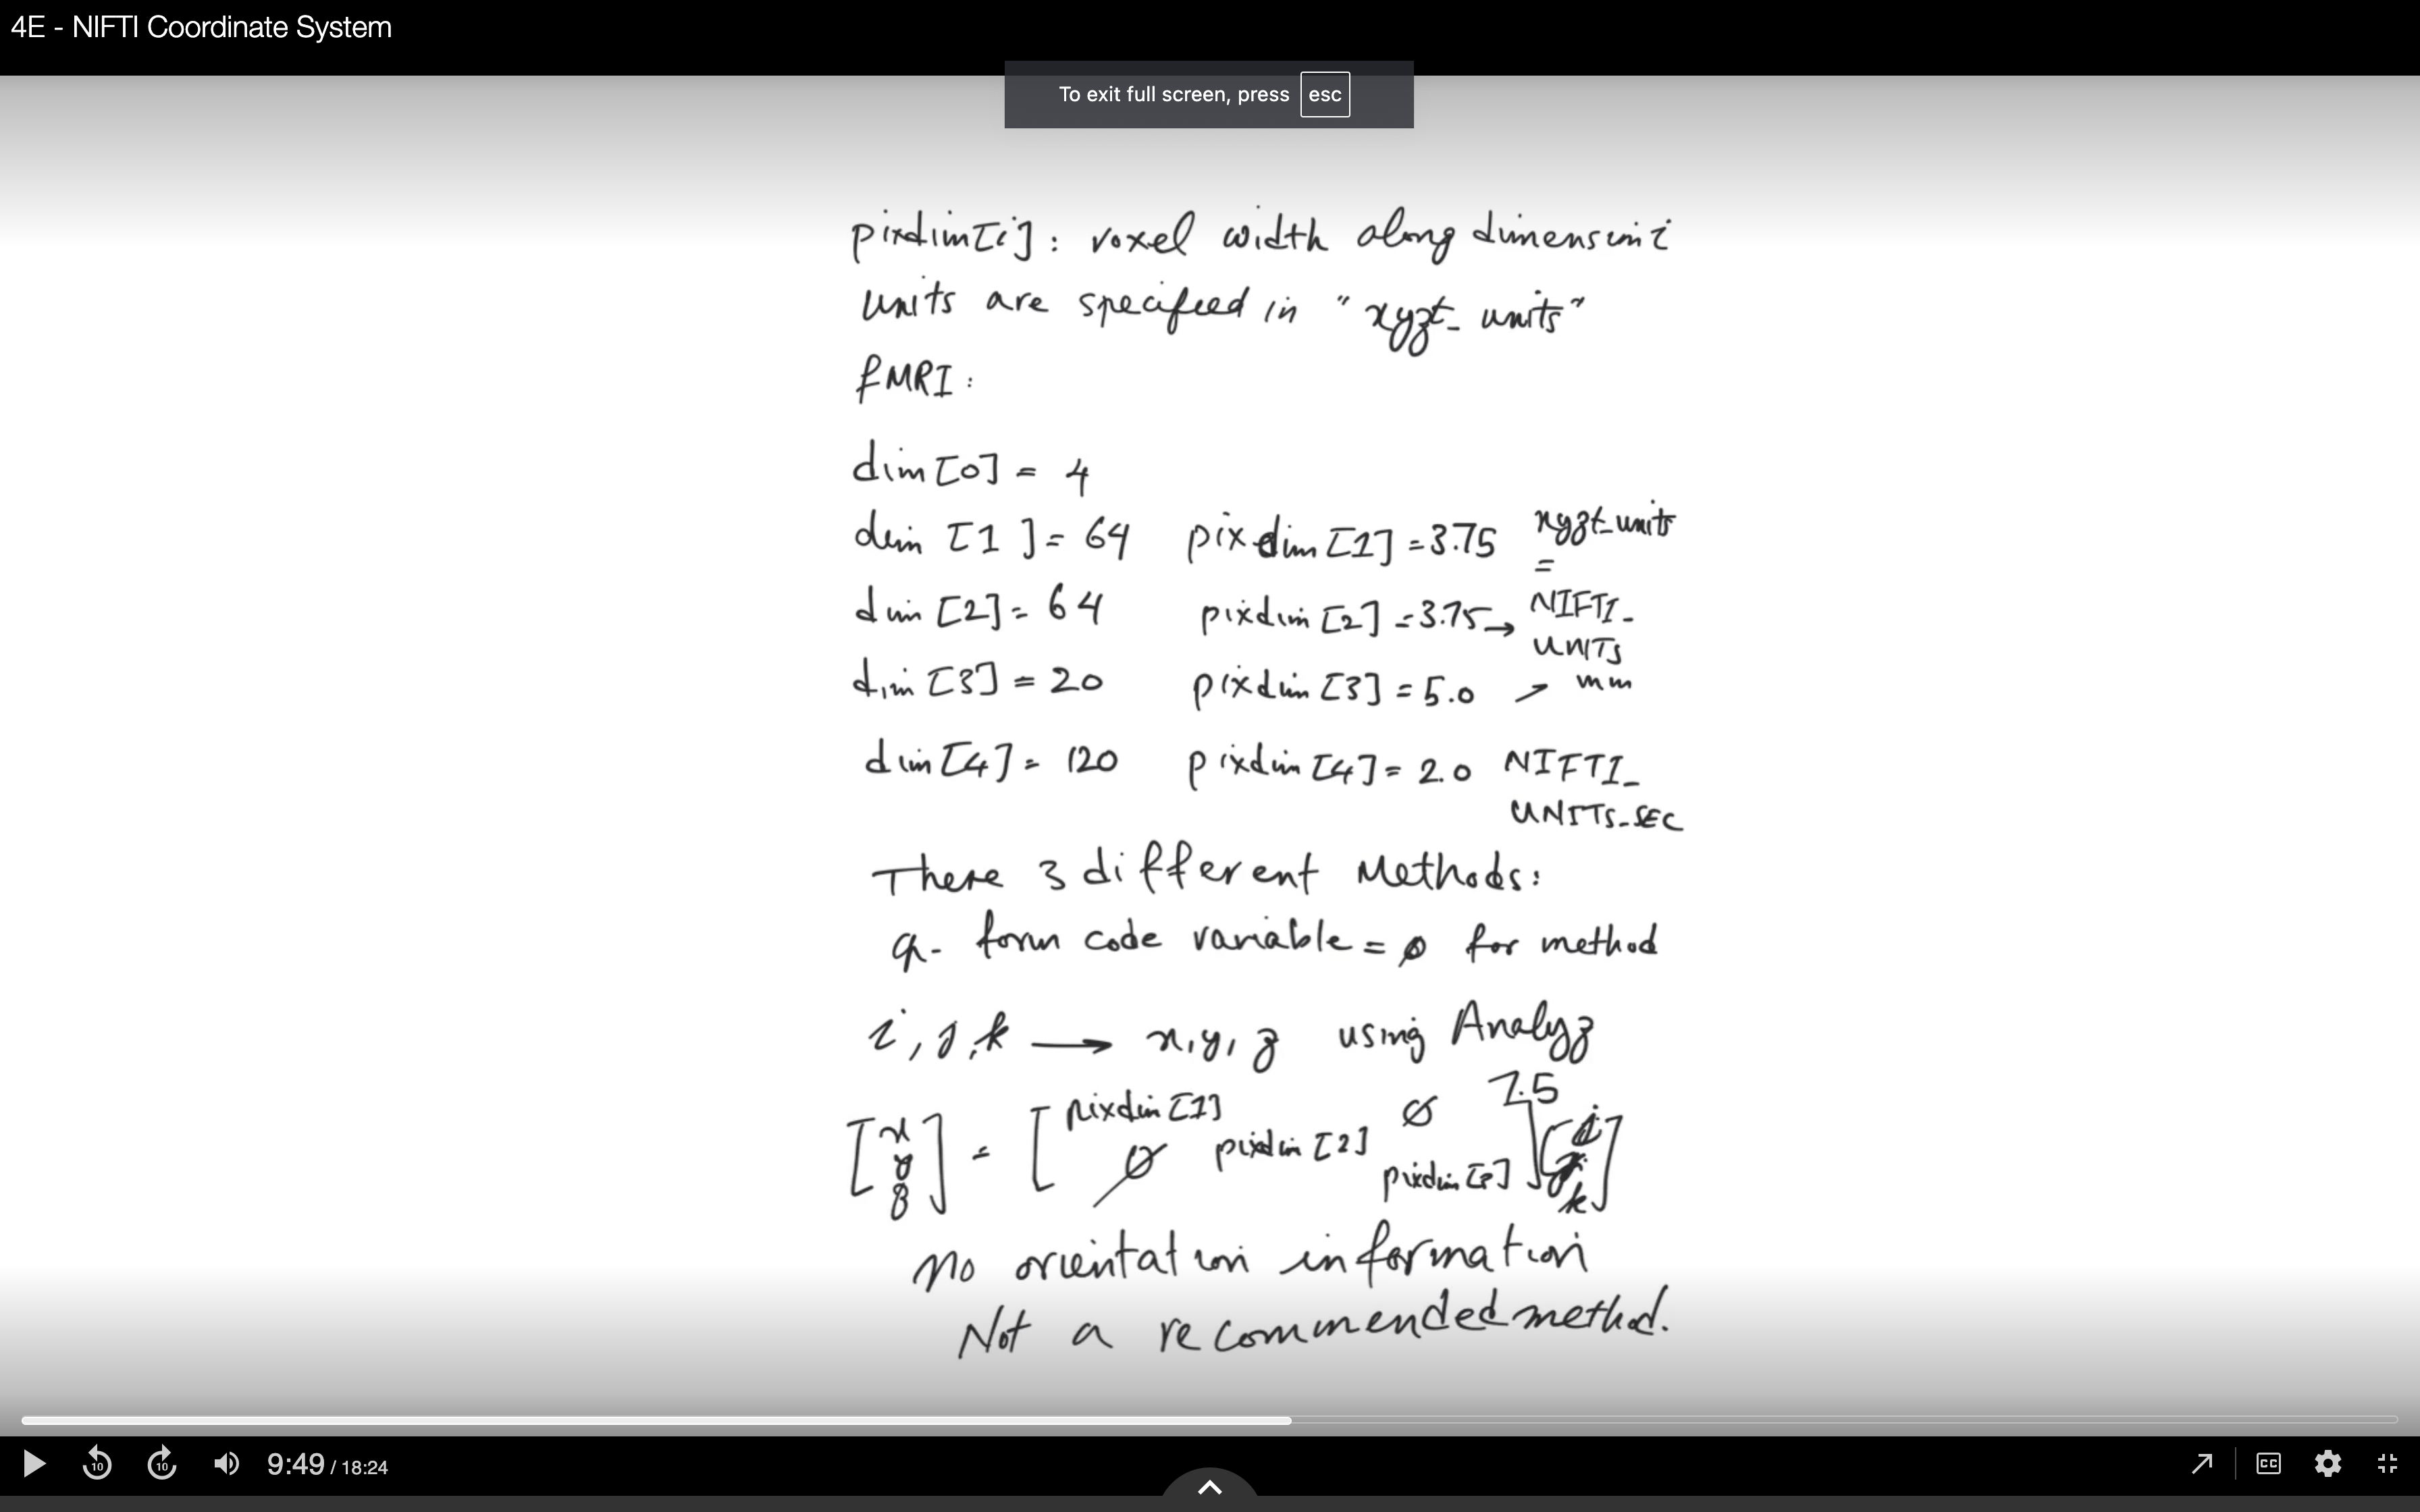 4E - NIFTI Coordinate System
To exit full screen, press esc
pixdim[i]: voxel width along dimension i
units are specified in "xyzt_units"
fMRI:
dim[0] = 4
dim [1] = 64 pixdim[1] = 3.75 xyzt_units
=
dim [2] = 64 pixdim [2] = 3.75 → NIFTI_
UNITS
dim [3] = 20 pixdim [3] = 5.0 mm
dim [4] = 120 pixdim [4] = 2.0 NIFTI_
UNITS_SEC
There 3 different Methods:
q- form code variable = 0 for method
i, j, k → x, y, z using Analyz
7.5
[x y z] = [pixdim[1] 0 0 pixdim [2] pixdim [3]] [i j k]
No orientation information
Not a recommended method.
10 10 9:49 / 18:24 CC